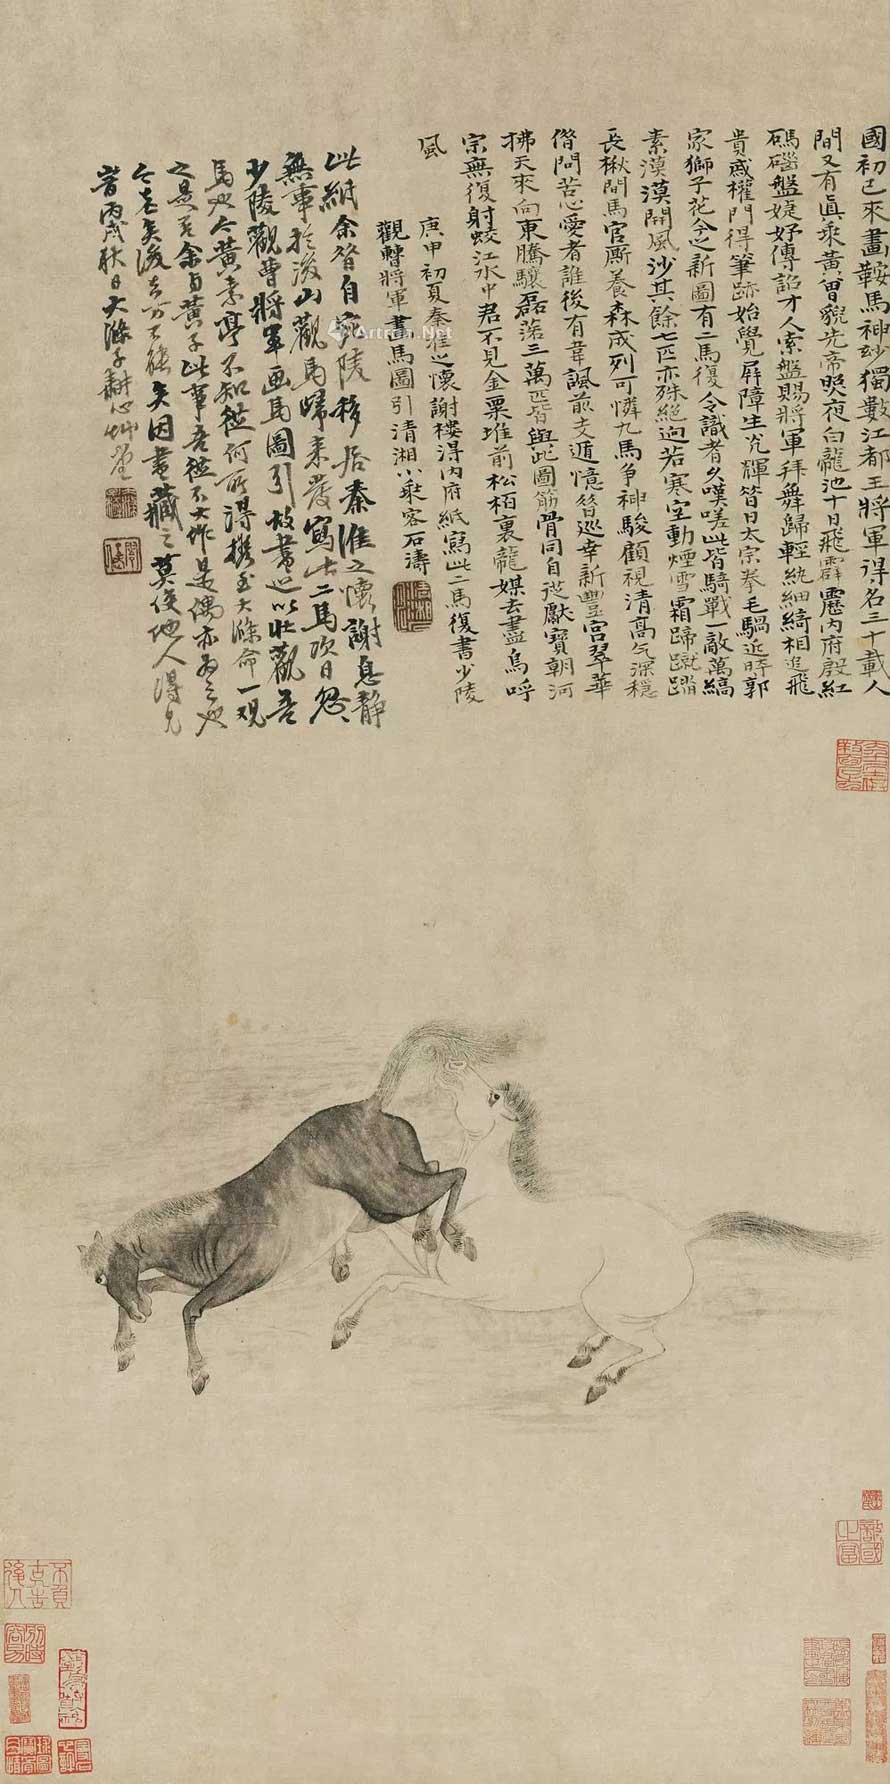 國初已來畫鞍馬神玅獨數江都王將軍得名三十載人
間又有真乘黃曾貌先帝照夜白龍池十日飛霹靂內府殷紅
碼碯盤婕妤傳詔才人索盤賜將軍拜舞歸輕紈細綺相追飛
貴戚權門得筆跡始覺屏障生光輝昔日太宗拳毛騧近時郭
家獅子花今之新圖有二馬復令識者久嘆嗟此皆騎戰一敵萬縞
素漠漠開風沙其餘七匹亦殊絕迥若寒空動煙雪霜蹄蹴踏
長楸間馬官廝養森成列可憐九馬爭神駿顧視清高气深穩
借問苦心愛者誰後有韋諷前支遁憶昔巡幸新豐宮翠華
拂天來向東騰驤磊落三萬匹皆與此圖筋骨同自從獻寶朝河
宗無復射蛟江水中君不見金粟堆前松柏裏龍媒去盡鳥呼
風
庚申初夏秦淮之懷謝樓得內府紙寫此二馬復書少陵
觀曹將軍畫馬圖引清湘小乘客石濤
此紙余昔自宛陵移居秦淮之懷謝息靜
無事於後山觀馬歸來發寫此二馬次日忽
少陵觀曹將軍画馬圖引故書也以壯觀吾
馬也今黃素亭不知從何所得攜至大滌命一观
之是吾余与黃子此事吾從不大作是偶亦为之也
今老矣後去万不能矣因書藏之莫使他人得見
昔丙戌秋日大滌子耕心艸堂
Artron.Net